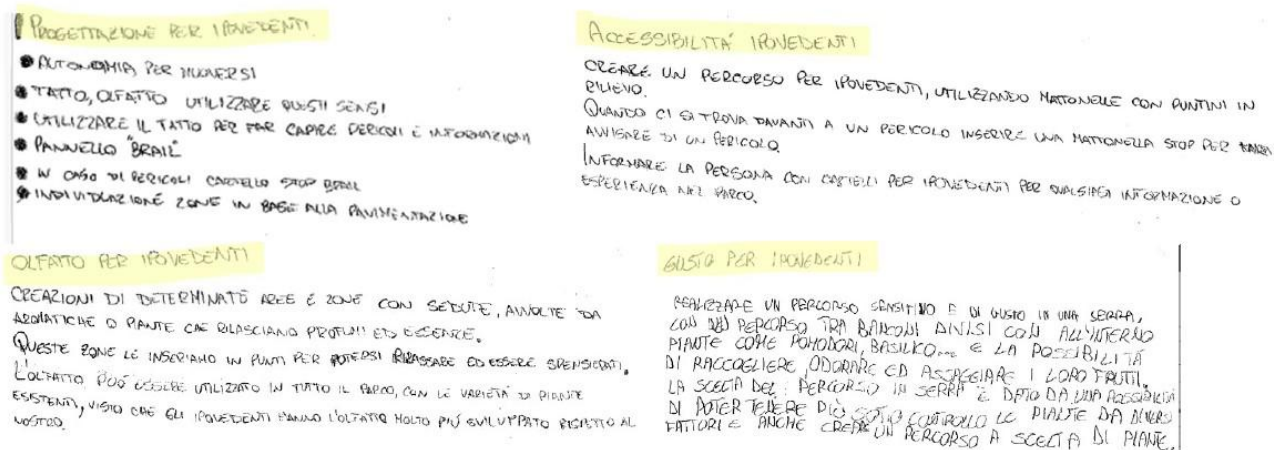 PROGETTAZIONE PER IPOVEDENTI
AUTONOMIA PER MUOVERSI
TATTO, OLFATTO UTILIZZARE QUESTI SENSI
UTILIZZARE IL TATTO PER FAR CAPIRE PERICOLI E INFORMAZIONI
PANNELLO "BRAIL"
IN CASO DI PERICOLI CARTELLO STOP BRAIL
INDIVIDUAZIONE ZONE IN BASE ALLA PAVIMENTAZIONE
ACCESSIBILITA' IPOVEDENTI
CREARE UN PERCORSO PER IPOVEDENTI, UTILIZZANDO MATTONELLE CON PUNTINI IN
RILIEVO.
QUANDO CI SI TROVA DAVANTI A UN PERICOLO INSERIRE UNA MATTONELLA STOP PER
AVVISARE DI UN PERICOLO.
INFORMARE LA PERSONA CON CARTELLI PER IPOVEDENTI PER QUALSIASI INFORMAZIONE O
ESPERIENZA NEL PARCO.
OLFATTO PER IPOVEDENTI
CREAZIONI DI DETERMINATE AREE E ZONE CON SEDUTE, AVVOLTE DA
AROMATICHE O PIANTE CHE RILASCIANO PROFUMI ED ESSENZE.
QUESTE ZONE LE INSERIAMO IN PUNTI PER POTERSI RILASSARE ED ESSERE SPENSIERATI.
L'OLFATTO PUÓ ESSERE UTILIZZATO IN TUTTO IL PARCO, CON LE VARIETÀ DI PIANTE
ESISTENTI, VISTO CHE GLI IPOVEDENTI HANNO L'OLFATTO MOLTO PIÚ SVILUPPATO RISPETTO AL
NOSTRO.
GUSTO PER IPOVEDENTI
REALIZZARE UN PERCORSO SENSITIVO E DI GUSTO IN UNA SERRA,
CON PERCORSO TRA BANCONI DIVISI CON ALL'INTERNO
PIANTE COME POMODORI, BASILICO... E LA POSSIBILITÀ
DI RACCOGLIERE, ODORARE ED ASSAGGIARE I LORO FRUTTI.
LA SCELTA DEL PERCORSO IN SERRA È DATO DA UNA POSSIBILITÀ
DI POTER TENERE PIÙ SOTTO CONTROLLO LE PIANTE DA DIVERSI
FATTORI E ANCHE CREARE UN PERCORSO A SCELTA DI PIANTE.